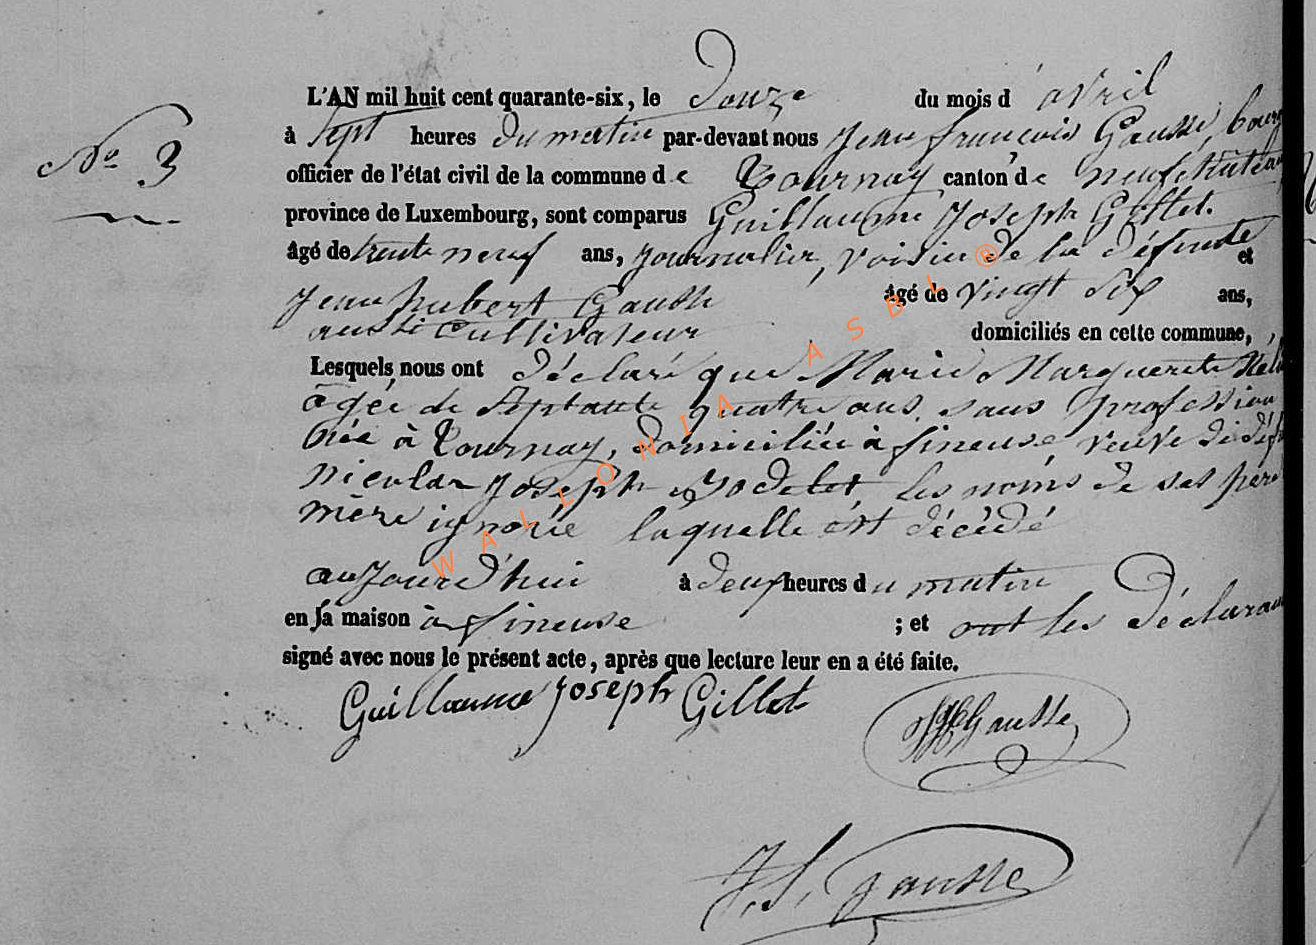 L'AN mil huit cent quarante-six, le Douze du mois d' avril
N° 3
à Sept heures du matin par-devant nous Jean françois Gausse, bourg
officier de l'état civil de la commune de Tournay canton de neufchâteau
province de Luxembourg, sont comparus Guillaume Joseph Gillet.
âgé de trente neuf ans, Journalier, voisin de la défunte et
Jean hubert Gausse âgé de vingt Six ans,
aussi Cultivateur domiciliés en cette commune,
Lesquels nous ont déclaré que Marie Marguerite
agée de Septante quatre ans, sans profession
née à Tournay, domiciliée à fineuse, veuve de
nicolas Joseph les noms de ses père
mère ignorée laquelle est décédé
aujourd'hui à deux heures du matin
en sa maison à fineuse ; et ont les déclarans
signé avec nous le présent acte, après que lecture leur en a été faite.
Guillaume Joseph Gillet
JH Gausse
J. f. gausse
WALLONIA ASBL ®